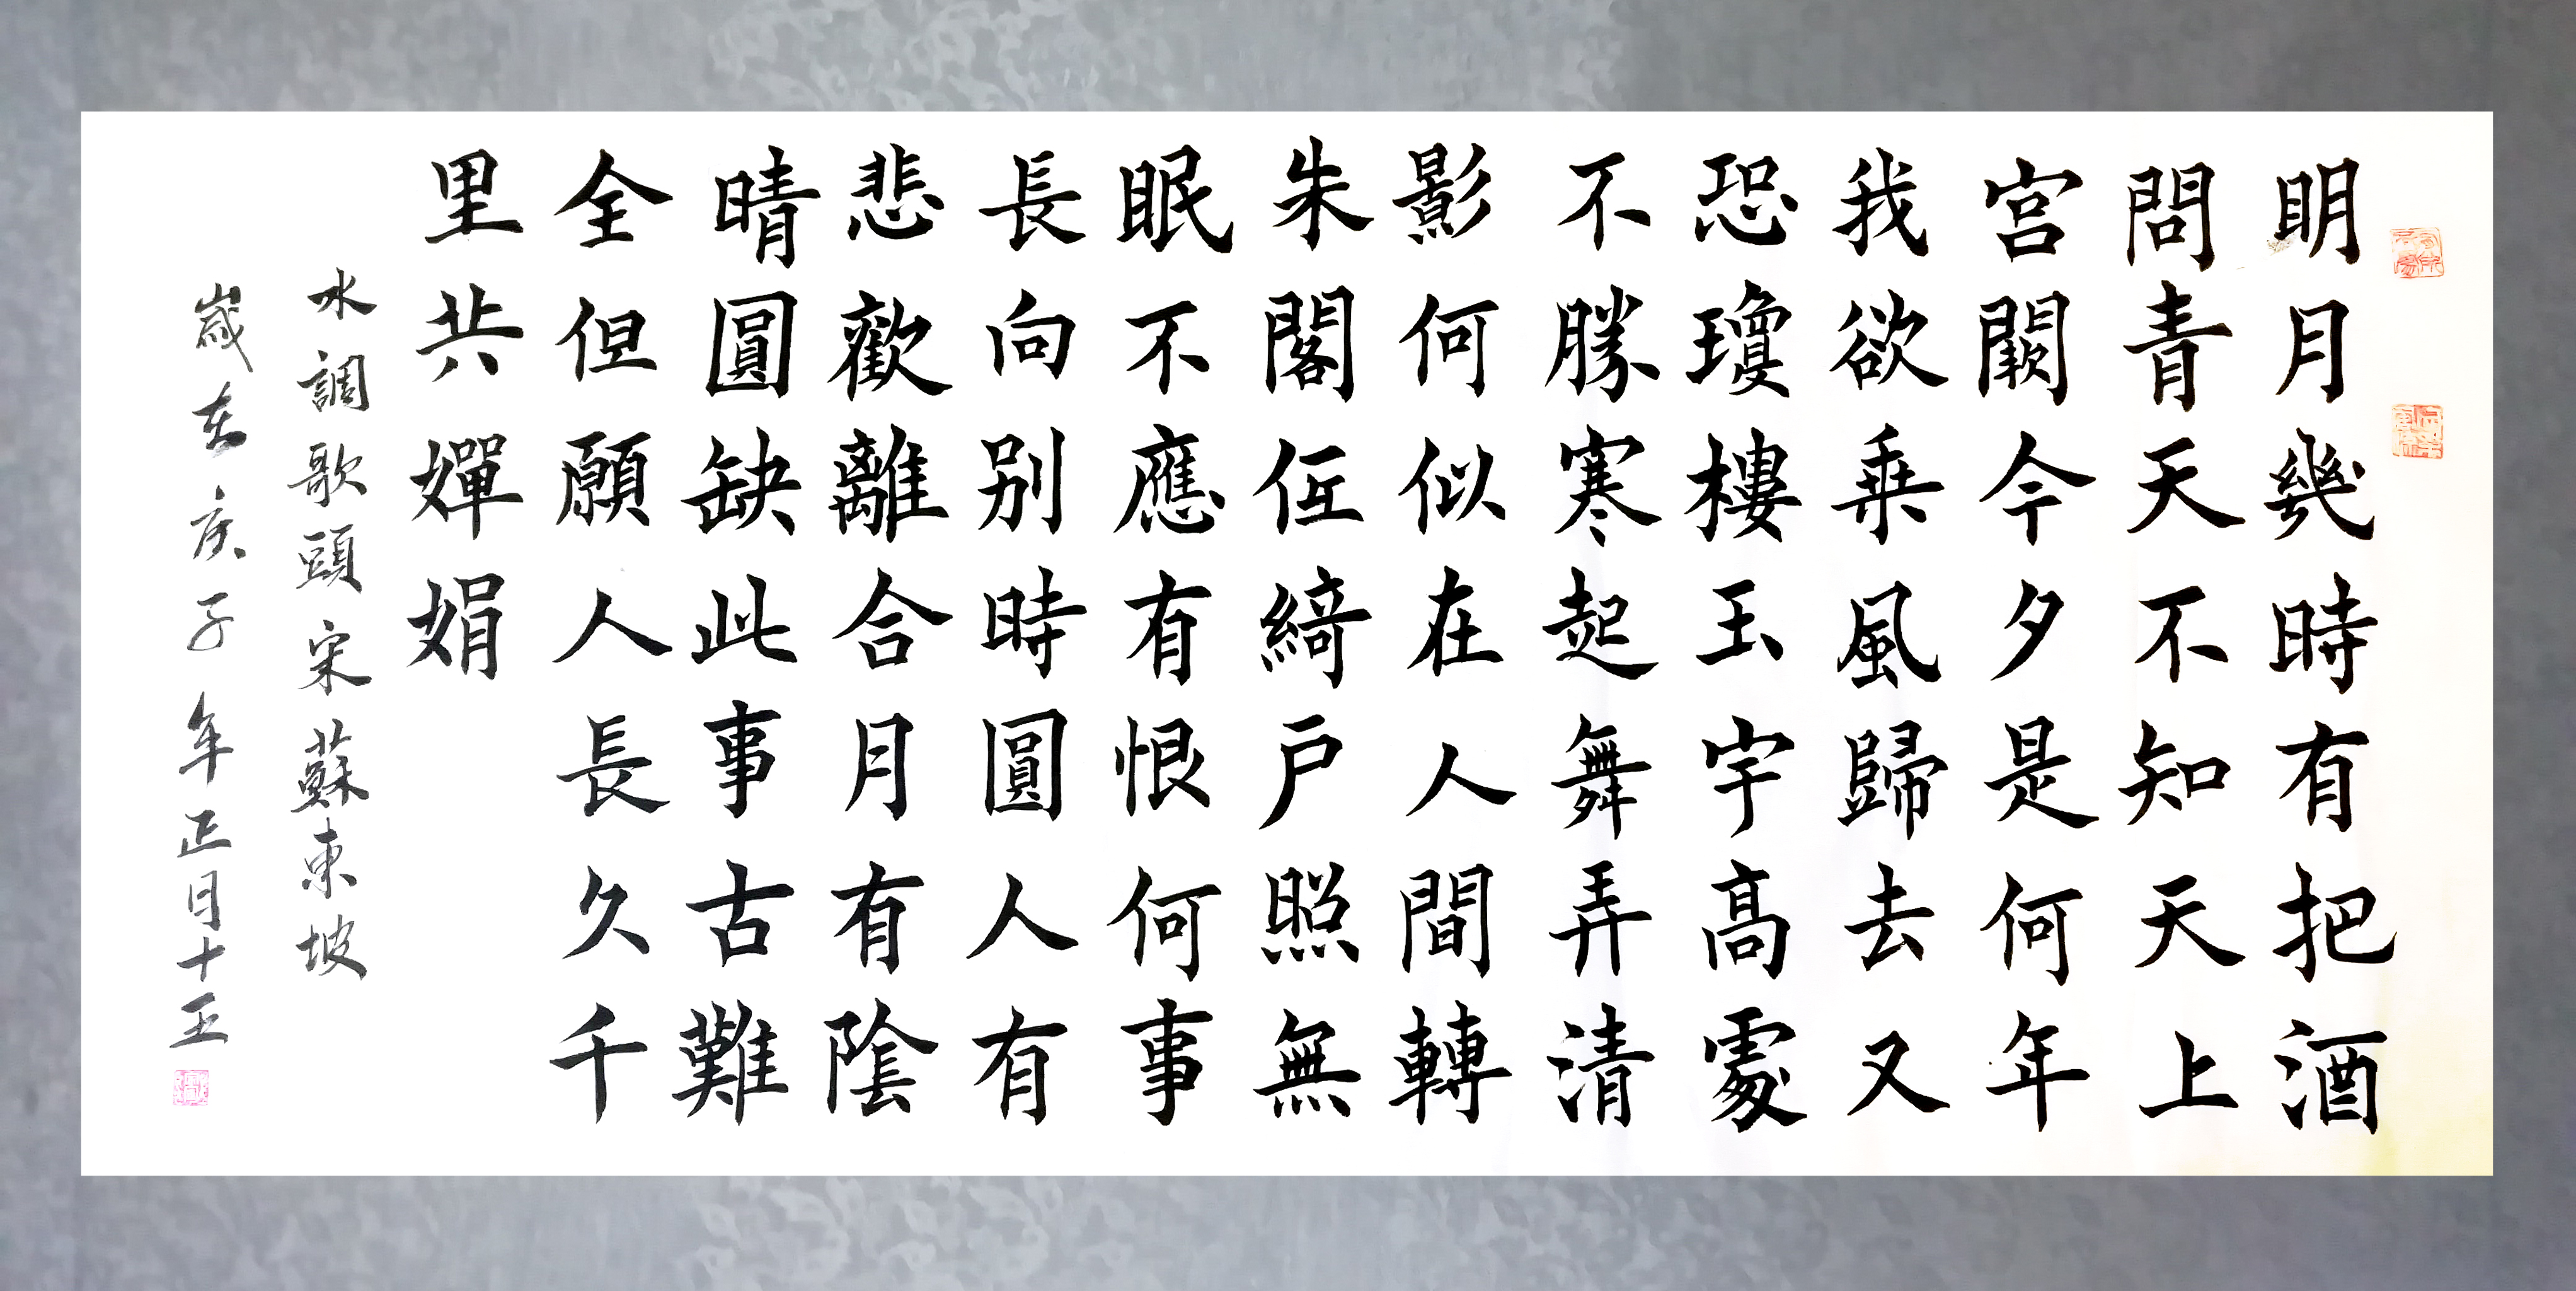 明月幾時有把酒
問青天不知天上
宮闕今夕是何年
我欲乘風歸去又
恐瓊樓玉宇高處
不勝寒起舞弄清
影何似在人間轉
朱閣低綺戶照無
眠不應有恨何事
長向别時圓人有
悲歡離合月有陰
晴圓缺此事古難
全但願人長久千
里共嬋娟
水調歌頭宋蘇東坡
歲在庚子年正月十五